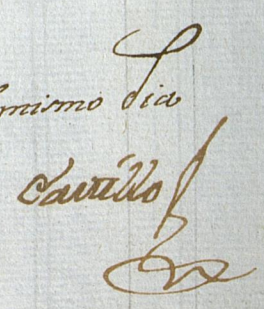 mismo Dia
Castillo